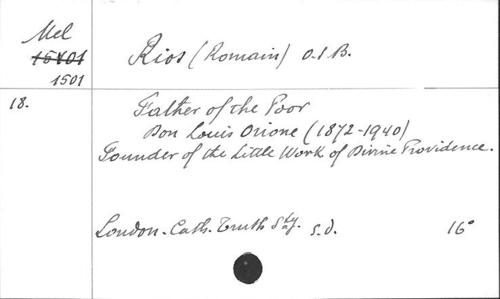 Mel
15401
1501
Rios (Romain) O.S.B.
18.
Father of the Poor
Don Louis Orione (1872-1940)
Founder of the Little Work of Divine Providence.
London. Cath. Truth Sty. s.d. 16°